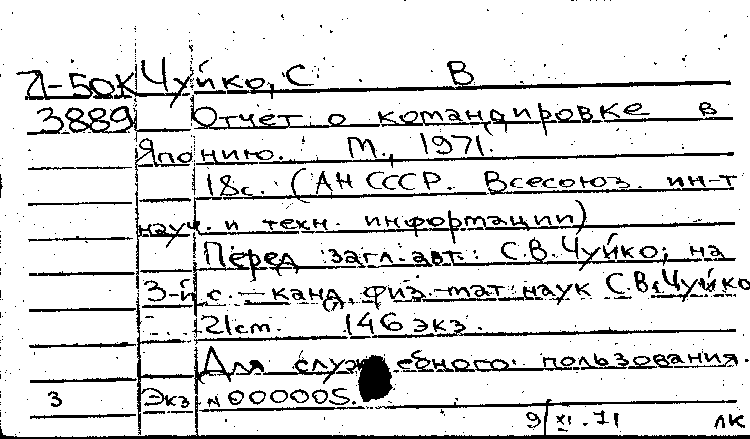 Д-50К Чуйко, С. В
3889 Отчет о командировке в
Японию. М., 1971.
18с. (АН СССР. Всесоюз. ин-т
науч. и техн. информации)
Перед загл. авт.: С.В. Чуйко; на
3-й с. – канд. физ.-мат. наук С.В. Чуйко
21см. 146 экз.
Для служебного пользования.
3 Экз. № 000005.
9/XI-71 ЛК